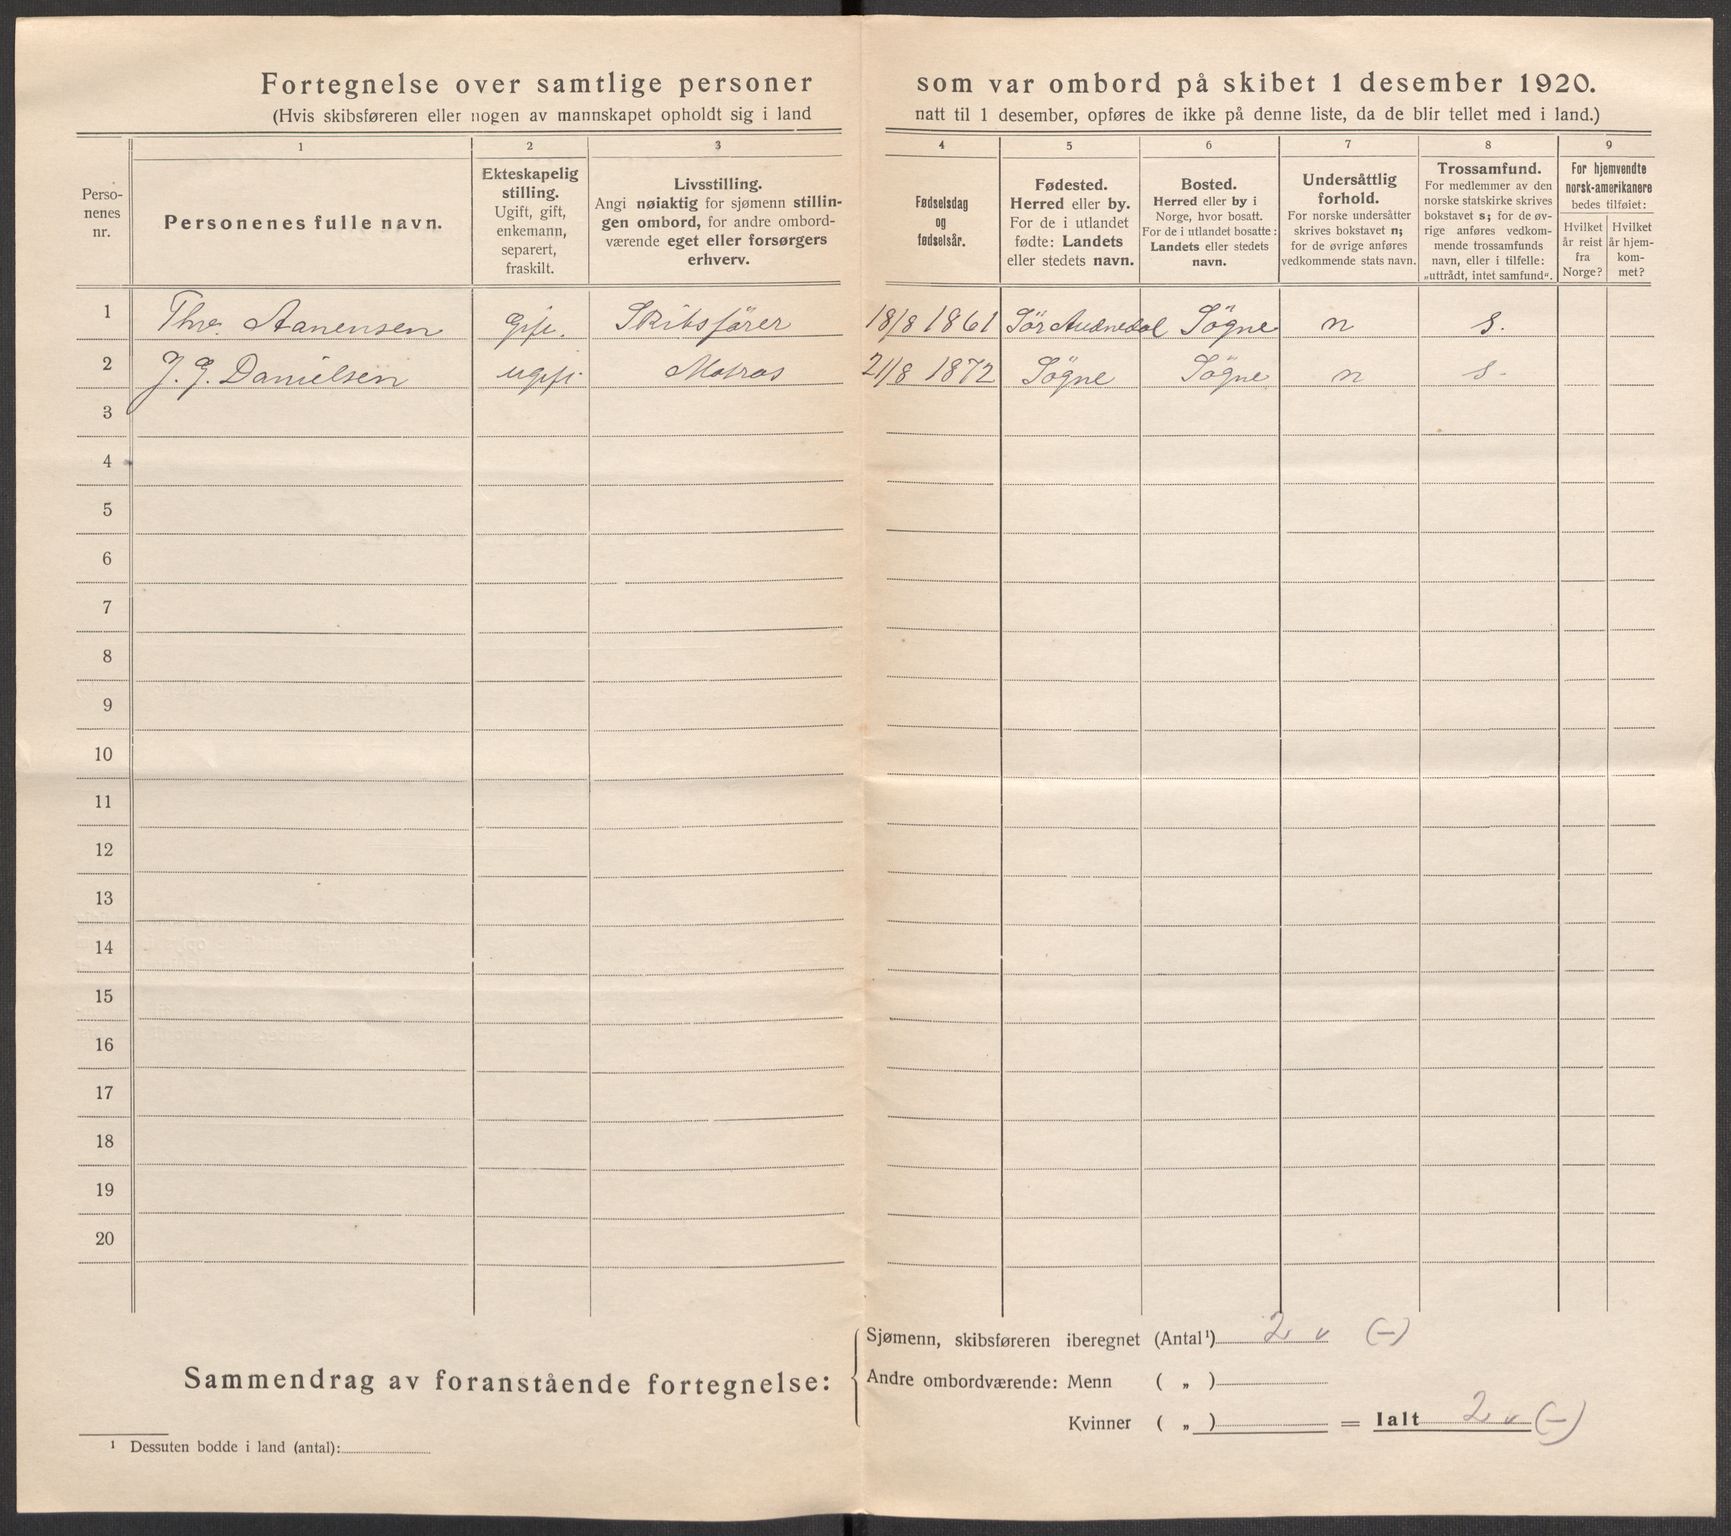 Fortegnelse over samtlige personer som var ombord på skibet 1 desember 1920.
(Hvis skibsføreren eller nogen av mannskapet opholdt sig i land natt til 1 desember, opføres de ikke på denne liste, da de blir tellet med i land.)
1 2 3 4 5 6 7 8 9
Perso-
nenes
nr.
Personenes fulle navn.
Ekteskapelig
stilling.
Ugift, gift,
enkemann,
separert,
fraskilt.
Livsstilling.
Angi nøiaktig for sjømenn stillin-
gen ombord, for andre ombord-
værende eget eller forsørgers
erhverv.
Fødselsdag
og
fødselsår.
Fødested.
Herred eller by.
For de i utlandet
fødte: Landets
eller stedets navn.
Bosted.
Herred eller by i
Norge, hvor bosatt.
For de i utlandet bosatte:
Landets eller stedets
navn.
Undersåttlig
forhold.
For norske undersåtter
skrives bokstavet n;
for de øvrige anføres
vedkommende stats navn.
Trossamfund.
For medlemmer av den
norske statskirke skrives
bokstavet s; for de øv-
rige anføres vedkom-
mende trossamfunds
navn, eller i tilfelle:
„uttrådt, intet samfund".
For hjemvendte
norsk-amerikanere
bedes tilføiet:
Hvilket
år reist
fra
Norge?
Hvilket
år hjem-
kom-
met?
1 Aanensen gift. Skibsfører 18/8 1861 Sör Audnedal Sögne n s.
2 J. G. Danielsen ugift Matros 21/8 1872 Sögne Sögne n s.
3
4
5
6
7
8
9
10
11
12
13
14
15
16
17
18
19
20
Sammendrag av foranstående fortegnelse:
Sjømenn, skibsføreren iberegnet (Antal¹) 2 v (-)
Andre ombordværende: Menn ( „ )
Kvinner ( „ ) = Ialt 2 v (-)
¹ Dessuten bodde i land (antal):